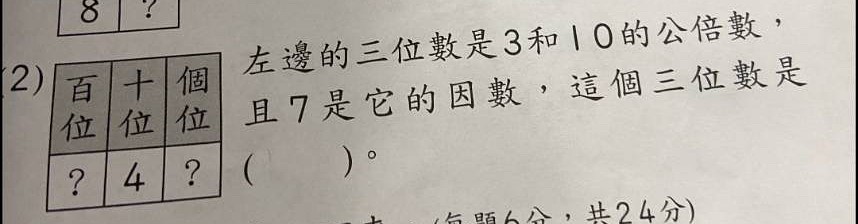 8 ?
(2) 百位 十位 個位
? 4 ?
左邊的三位數是3和10的公倍數，
且7是它的因數，這個三位數是
(　　)。
(每題6分，共24分)